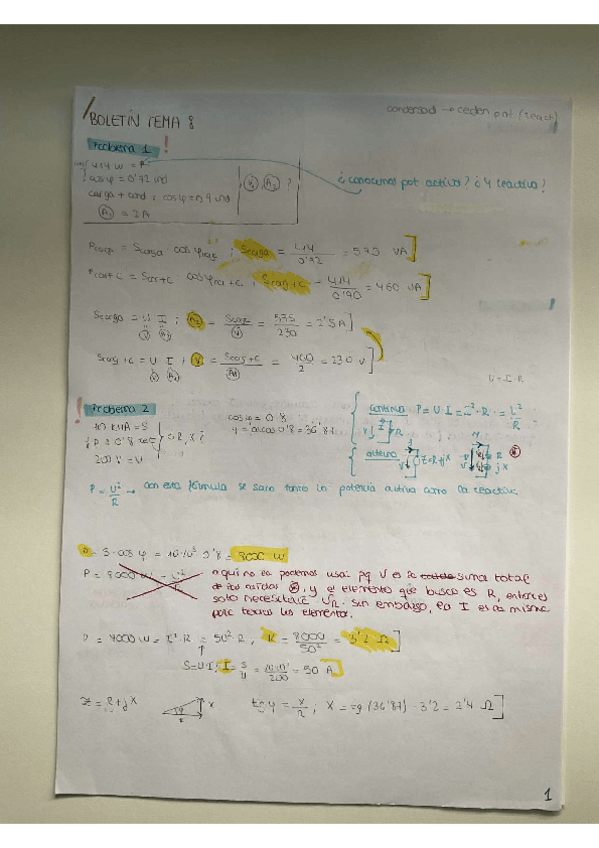 condensad → ceden pot. (react)
BOLETÍN TEMA 8
Problema 1 !
414 W = P
cos φ = 0'72 ind
carga + cond, cos φ = 0,9 ind
A₁ = 2A
V₁, A₂ ?
¿conocemos pot. activa? ¿y reactiva?
Pcarga = Scarga cos φcarg ; Scarga = 414 / 0'72 = 575 VA]
Pcar+c = Scar+c cos φcar+c ; Scarg+c = 414 / 0'90 = 460 VA]
Scarga = U I ; A₂ = Scarg / V = 575 / 230 = 2'5 A]
Scarg+c = U I ; V = Scarg+c / A₁ = 460 / 2 = 230 V]
U = I·R
! Problema 2
10 kVA = S
P = 0'8
R, X ?
200 V = V
cos φ = 0'8
φ = arcos 0'8 = 36'87
continua P = U·I = I²·R =
alterna
Z = R + jX
P = U² / R → con esta fórmula se saca tanto la potencia activa como la reactiva
P = S·cos φ = 10·10³·0'8 = 8000 W
P = 8000 W = U² / R
aquí no la podemos usar pq V es la suma total
de las caidas, y el elemento que busco es R, entonces
solo necesitaré UR. Sin embargo, la I es la misma
para todos los elementos.
P = 8000 W = I²·R = 50²·R ; R = 8000 / 50² = 3'2 Ω]
S = U·I ; I = S / U = 10·10³ / 200 = 50 A]
Z = R + jX
φ
R
X
tg φ = X / R ; X = tg (36'87) · 3'2 = 2'4 Ω]
1